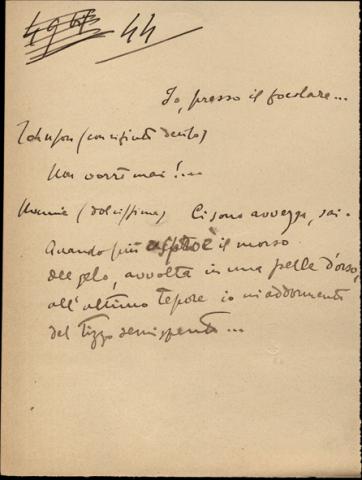 44
Io, presso il focolare...
Johnson (con rifiuto deciso)
Non vorrò mai!...
Minnie (dolcissima) Ci sono avvezza, sai.
Quando più aspro è il morso
del gelo, avvolta in una pelle d'orso,
all'ultimo tepore io m'addormento
del tizzo semispento...